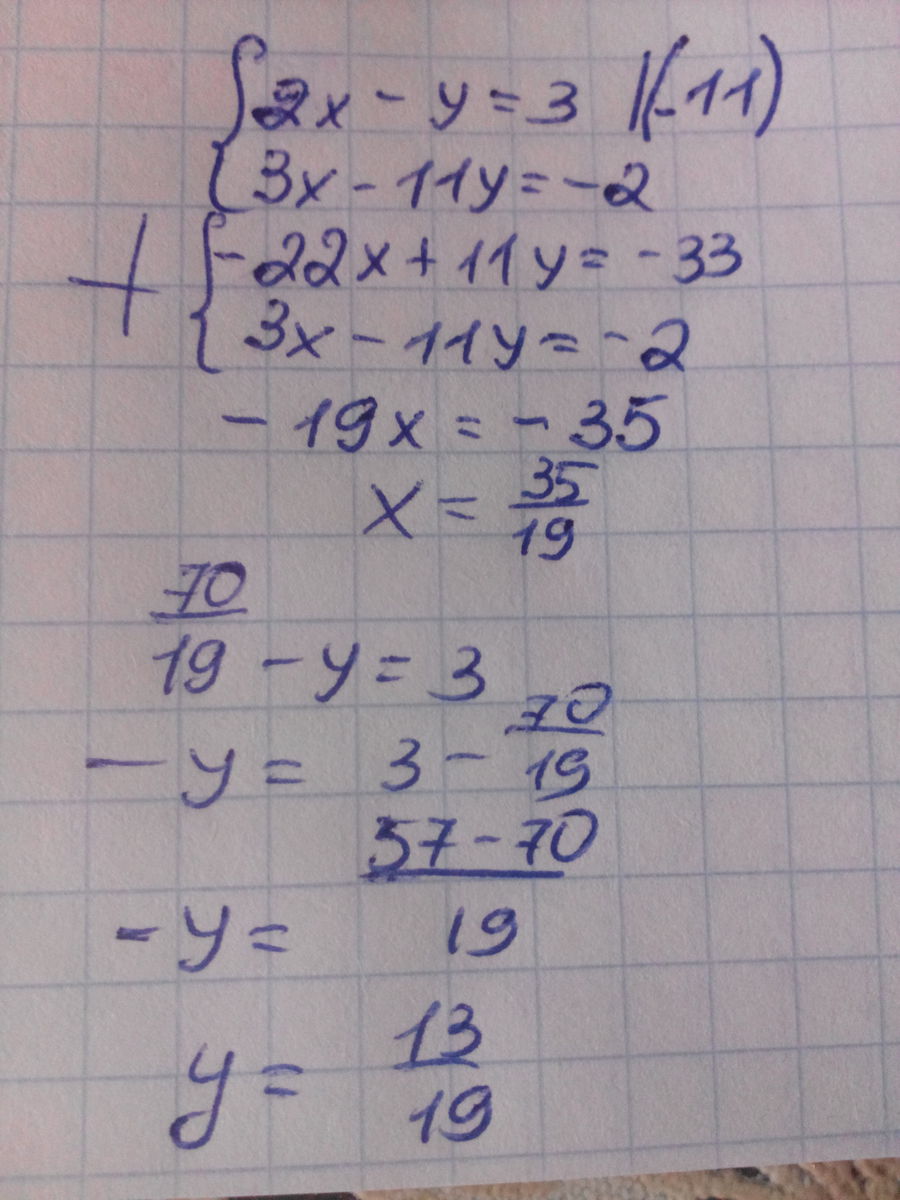 {2x - y = 3 |(-11)
{3x - 11y = -2
+ {-22x + 11y = -33
{3x - 11y = -2
-19x = -35
x = 35/19
70/19 - y = 3
-y = 3 - 70/19
-y = (57 - 70)/19
y = 13/19